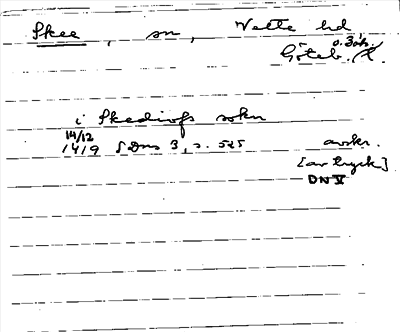 Skee, sn, Vette hd
Göteb. o. Boh. l.
i Skediofs sokn
14/12
1419 SDns 3, s. 525 avskr.
[av tryck]
DN V